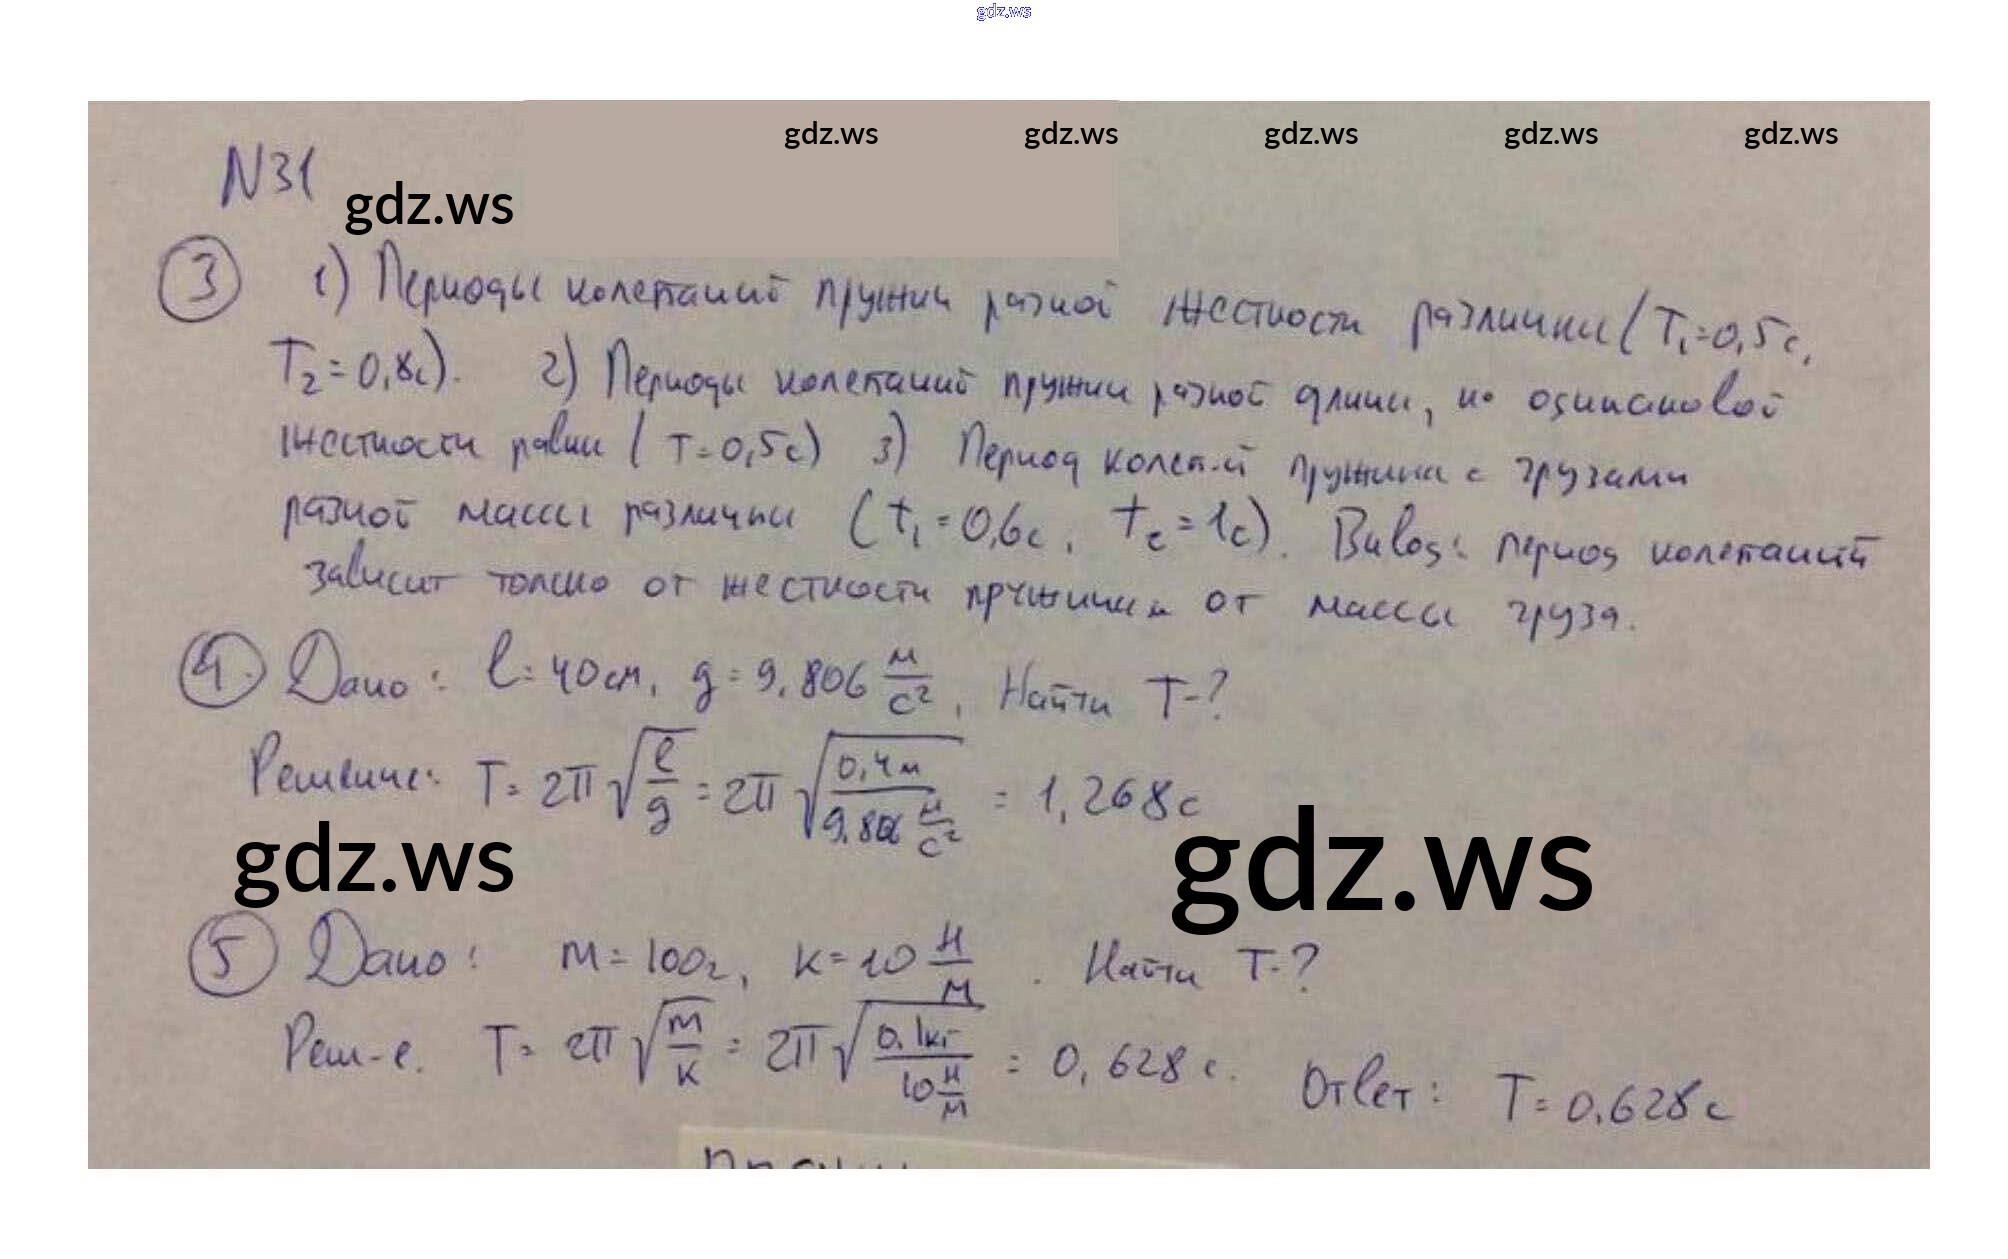 gdz.ws
gdz.ws gdz.ws gdz.ws gdz.ws gdz.ws
N31
gdz.ws
3 1) Периоды колебаний пружин разной жесткости различны (T₁=0,5с,
T₂=0,8с). 2) Периоды колебаний пружин разной длины, но одинаковой
жесткости равны (T=0,5с) 3) Период колеб-й пружины с грузами
разной массы различны (t₁=0,6с, t₂=1с). Вывод: период колебаний
зависит только от жесткости пружины и от массы груза.
4. Дано: l=40см, g=9.806 м/с², Найти T-?
Решение: T=2π√(l/g)=2π√(0,4м/9.806 м/с²)=1,268с
gdz.ws gdz.ws
5 Дано: m=100г, k=10 Н/м. Найти T-?
Реш-е. T=2π√(m/k)=2π√(0.1кг/10 Н/м)=0,628с. Ответ: T=0.628с